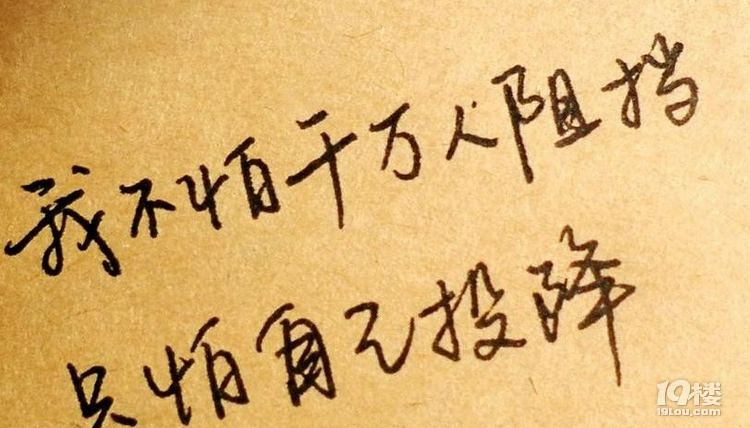 我不怕千万人阻挡
只怕自己投降
19楼
19lou.com